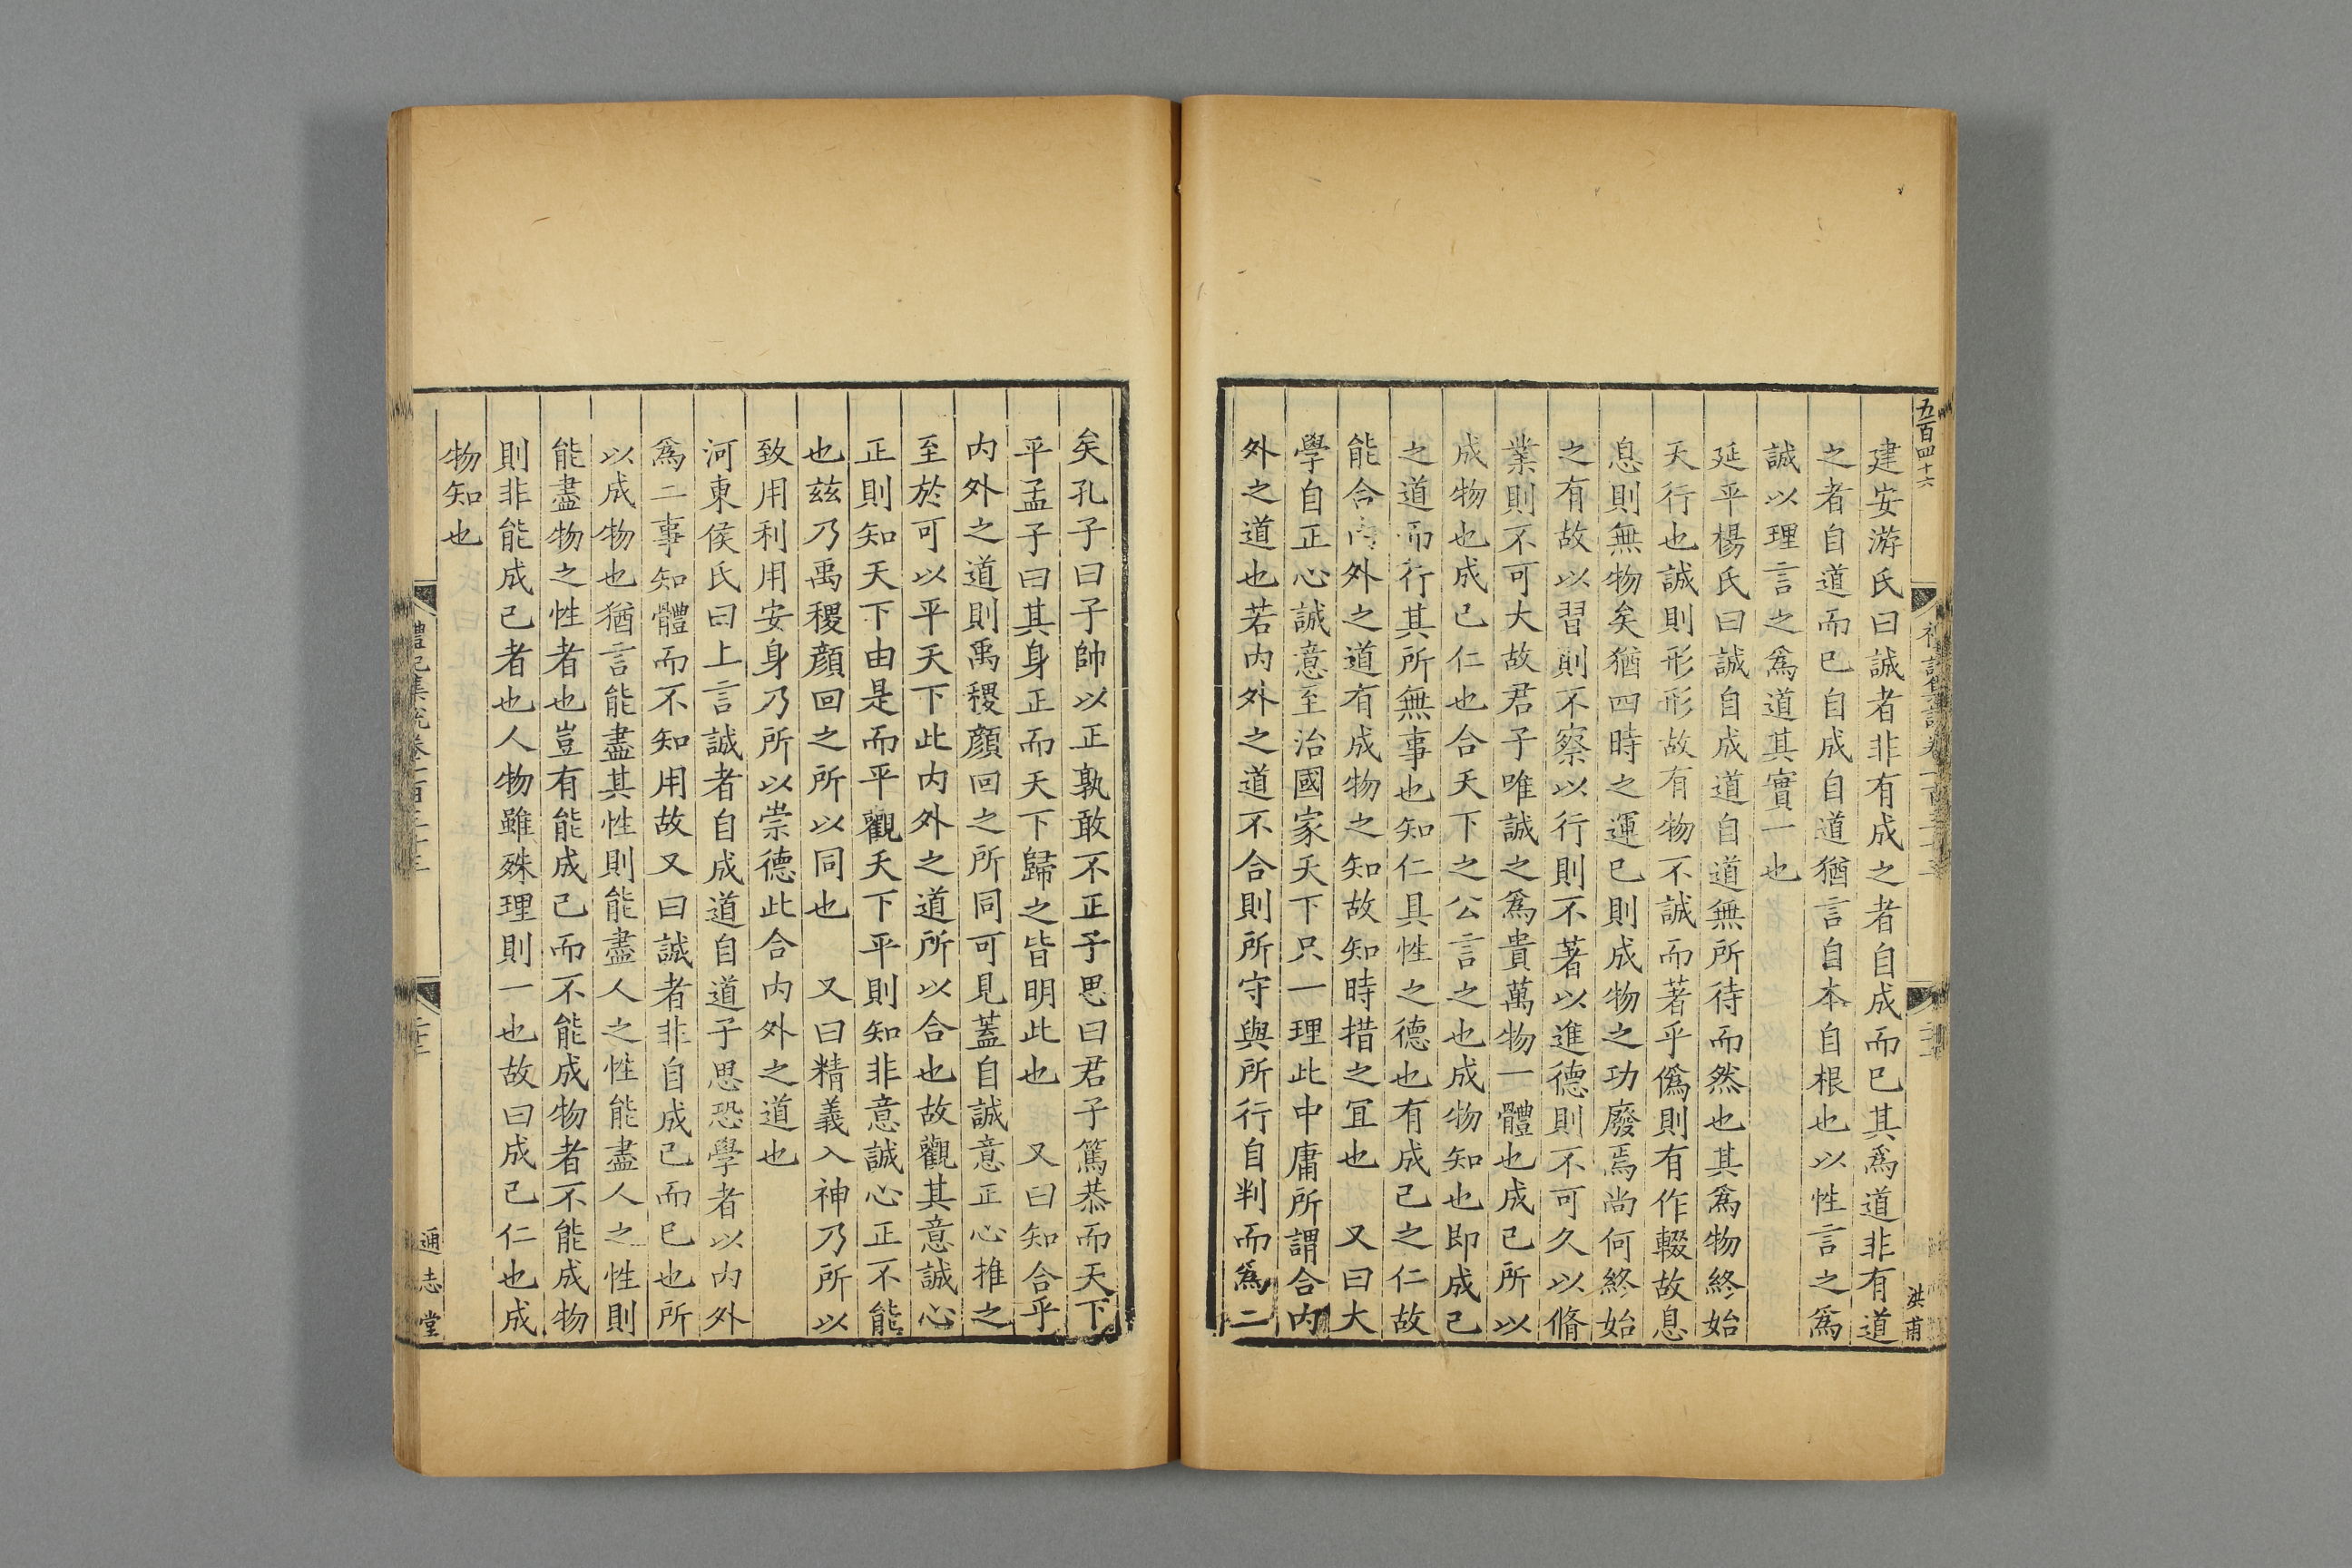 五百四十六
洪甫
建安游氏曰誠者非有成之者自成而已其爲道非有道
之者自道而已自成自道猶言自本自根也以性言之爲
誠以理言之爲道其實一也
延平楊氏曰誠自成道自道無所待而然也其爲物終始
天行也誠則形形故有物不誠而著乎僞則有作輟故息
息則無物矣猶四時之運已則成物之功廢焉尚何終始
之有故以習則不察以行則不著以進德則不可久以脩
業則不可大故君子唯誠之爲貴萬物一體也成己所以
成物也成己仁也合天下之公言之也成物知也即成己
之道而行其所無事也知仁具性之德也有成己之仁故
能合内外之道有成物之知故知時措之冝也 又曰大
學自正心誠意至治國家天下只一理此中庸所謂合内
外之道也若内外之道不合則所守與所行自判而爲二
矣孔子曰子帥以正孰敢不正子思曰君子篤恭而天下
平孟子曰其身正而天下歸之皆明此也 又曰知合乎
内外之道則禹稷顔回之所同可見蓋自誠意正心推之
至於可以平天下此内外之道所以合也故觀其意誠心
正則知天下由是而平觀天下平則知非意誠心正不能
也兹乃禹稷顔回之所以同也 又曰精義入神乃所以
致用利用安身乃所以崇德此合内外之道也
河東侯氏曰上言誠者自成道自道子思恐學者以内外
爲二事知體而不知用故又曰誠者非自成己而已也所
以成物也猶言能盡其性則能盡人之性能盡人之性則
能盡物之性者也豈有能成己而不能成物者不能成物
則非能成己者也人物雖殊理則一也故曰成己仁也成
物知也
禮記集說卷一百三十三
通志堂